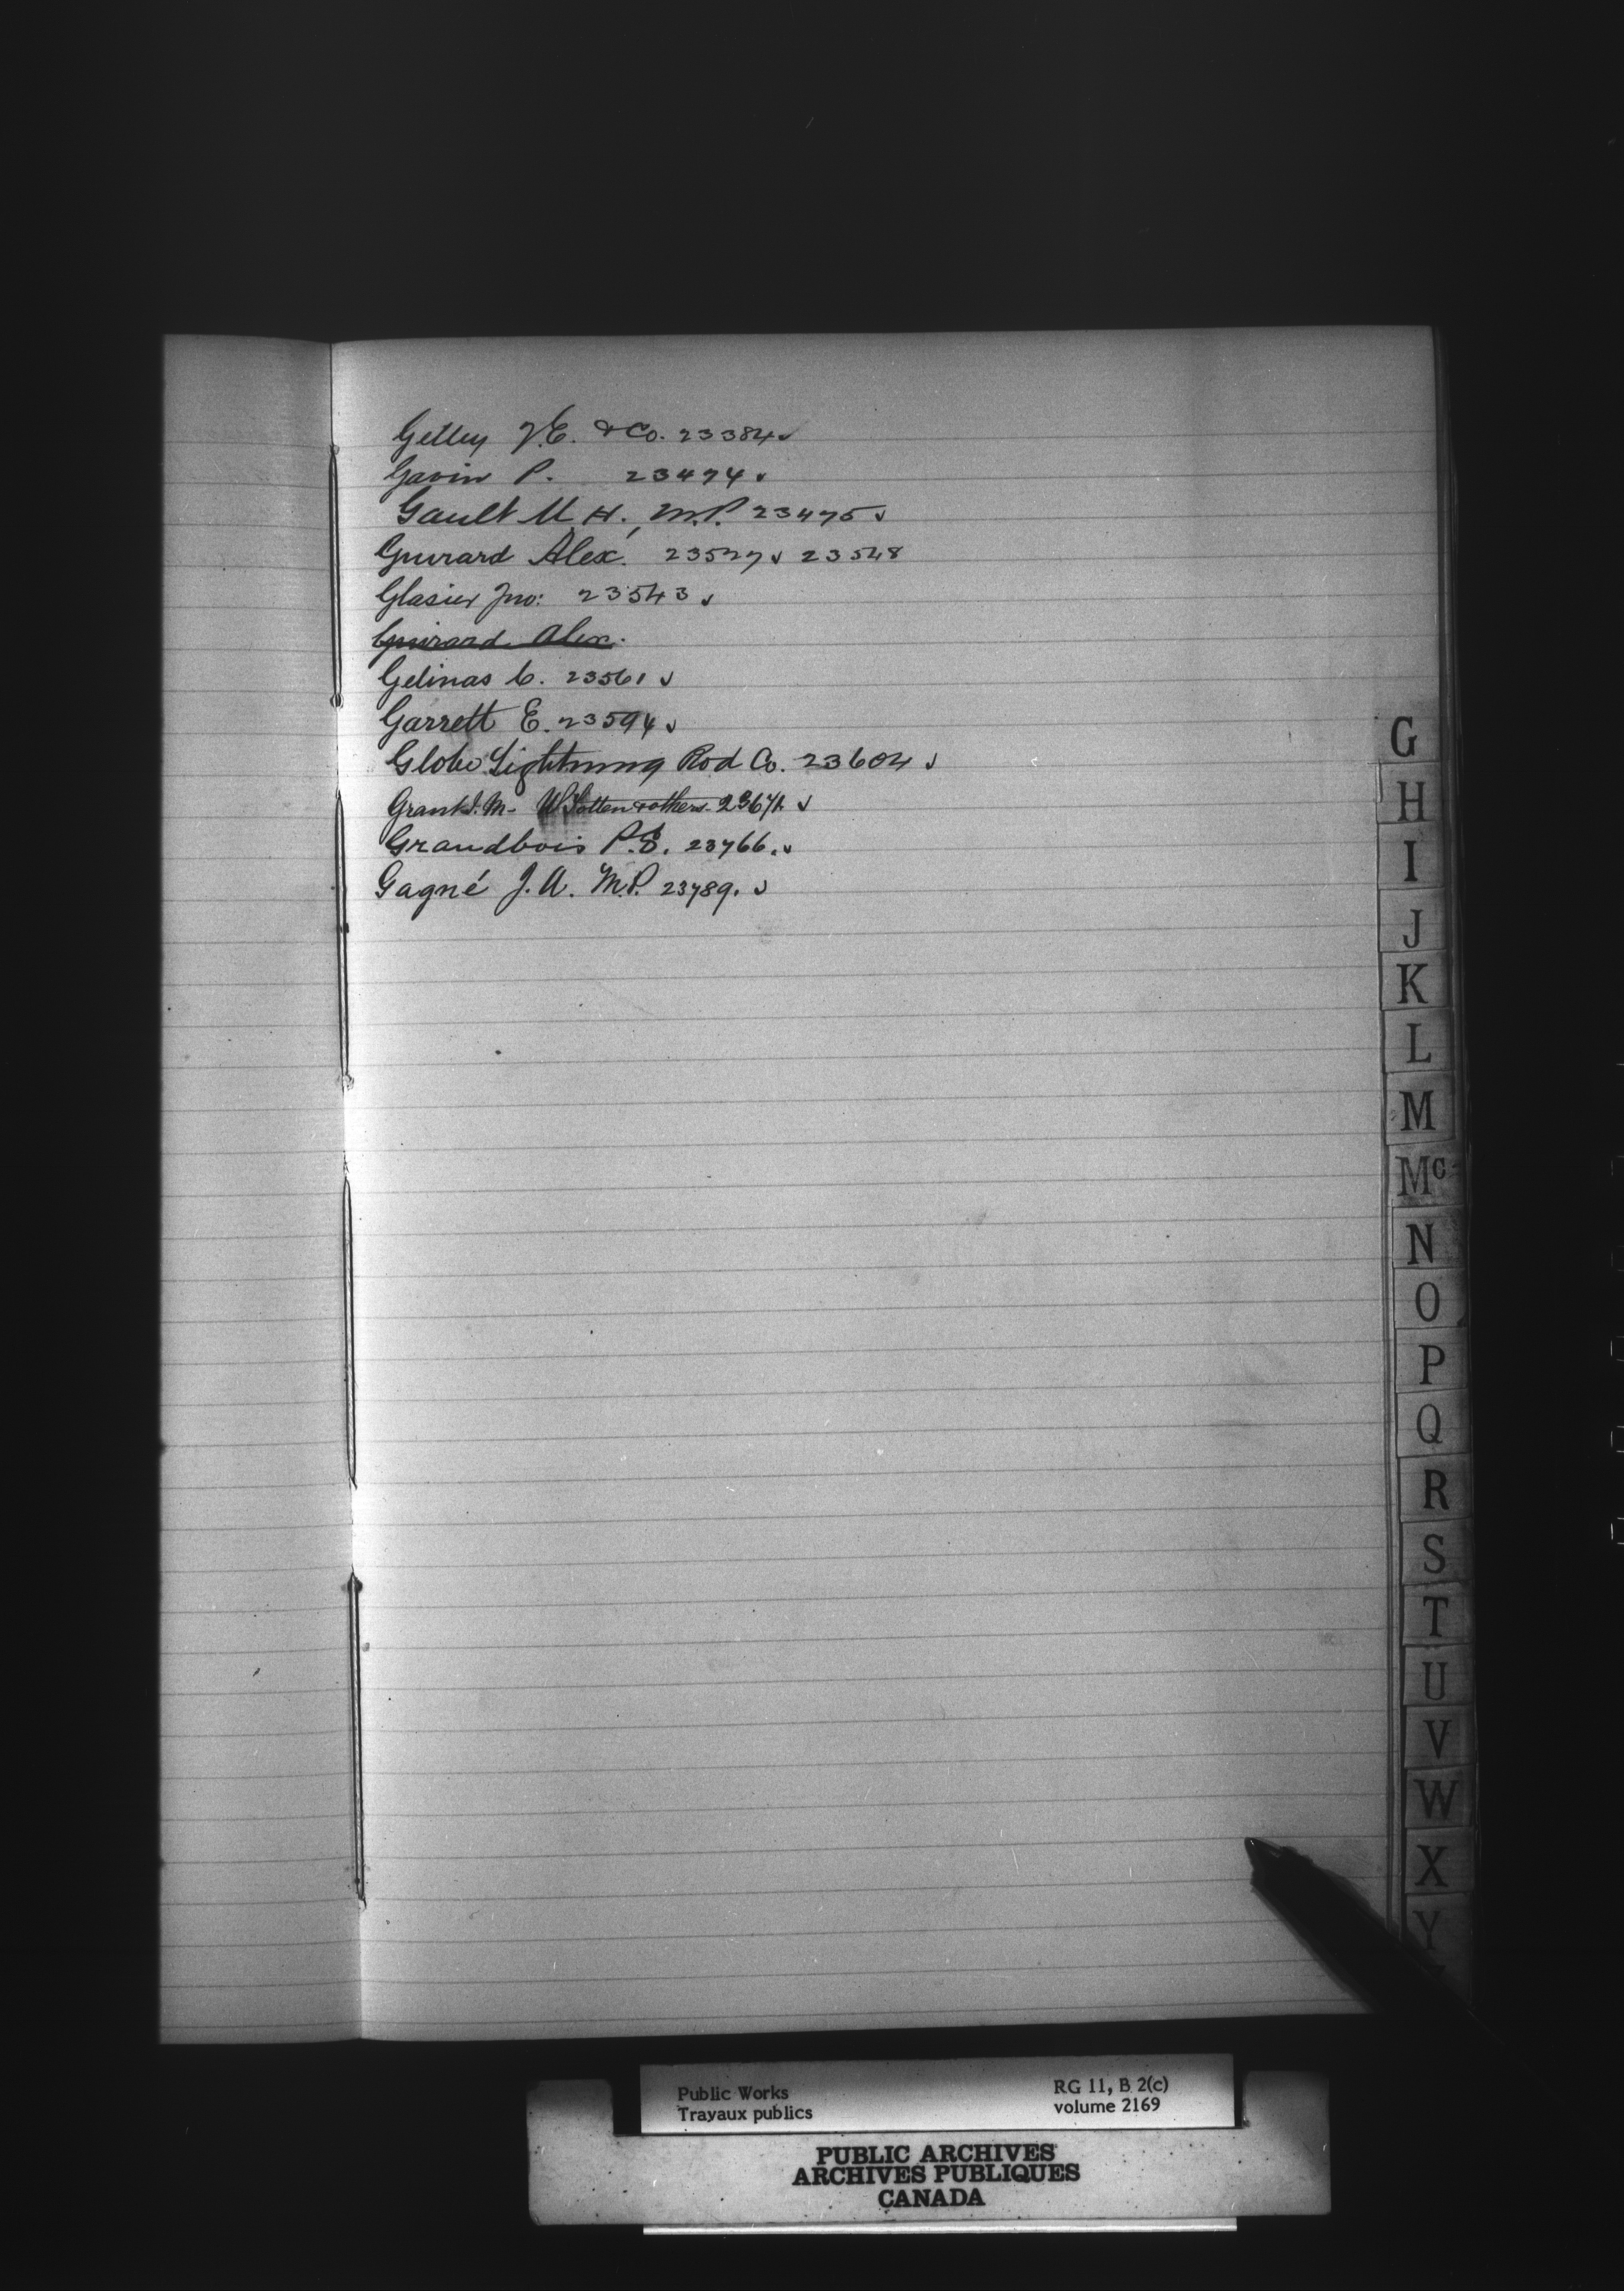 Gelley J.E. & Co. 23384 ✓
Gavin P. 23474 ✓
Gault M.H., M.P. 23475 ✓
Guirard Alex. 23527 ✓ 23548
Glasier Jno: 23543 ✓
Guirard Alex.
Gelinas C. 23561 ✓
Garrett E. 23594 ✓
Globe Lightning Rod Co. 23604 ✓
Grant J.M. W Totten & others. 23671 ✓
Grandbois P.E. 23766. ✓
Gagné J.A. M.P. 23789. ✓
G
H
I
J
K
L
M
Mc
N
O
P
Q
R
S
T
U
V
W
X
Y
Public Works
Travaux publics
RG 11, B 2(c)
volume 2169
PUBLIC ARCHIVES
ARCHIVES PUBLIQUES
CANADA